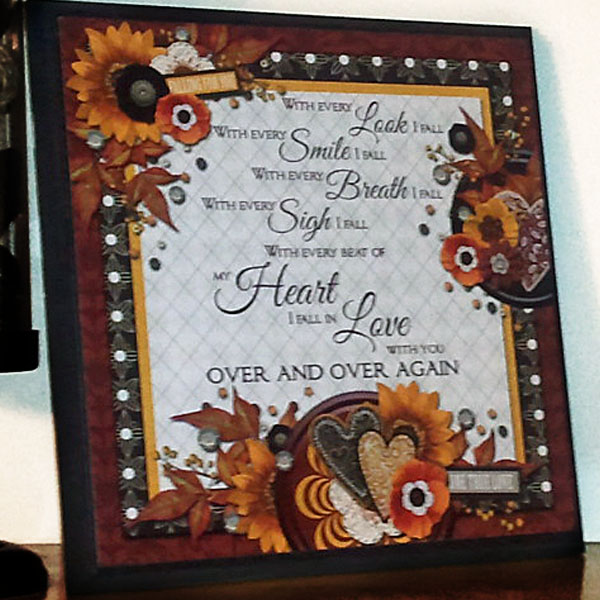 FALLING FOR YOU
WITH EVERY Look I FALL
WITH EVERY Smile I FALL
WITH EVERY Breath I FALL
WITH EVERY Sigh I FALL
WITH EVERY BEAT OF
MY Heart
I FALL IN Love
WITH YOU
OVER AND OVER AGAIN